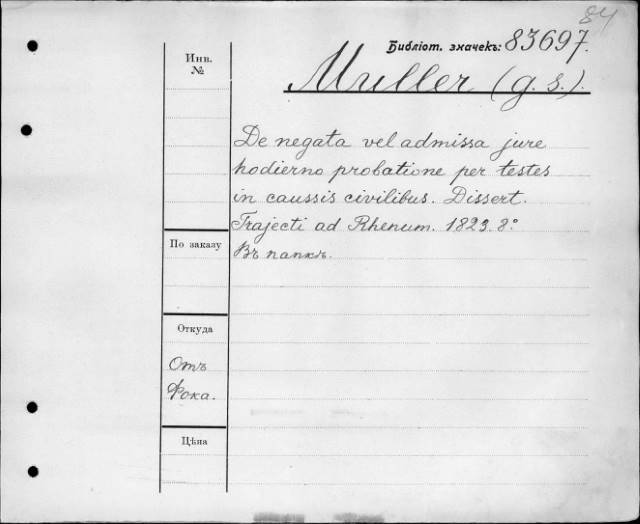 84
Библіот. значекъ: 83697.
Инв. №
Muller (g. s.).
De negata vel admissa jure
hodierno probatione per testes
in caussis civilibus. Dissert.
Trajecti ad Rhenum. 1823. 8°
По заказу
Въ папкѣ.
Откуда
Отъ
Фока.
Цѣна